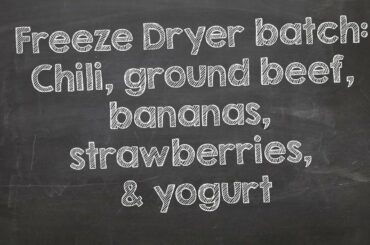 Freeze Dryer batch:
Chili, ground beef,
bananas,
strawberries,
& yogurt